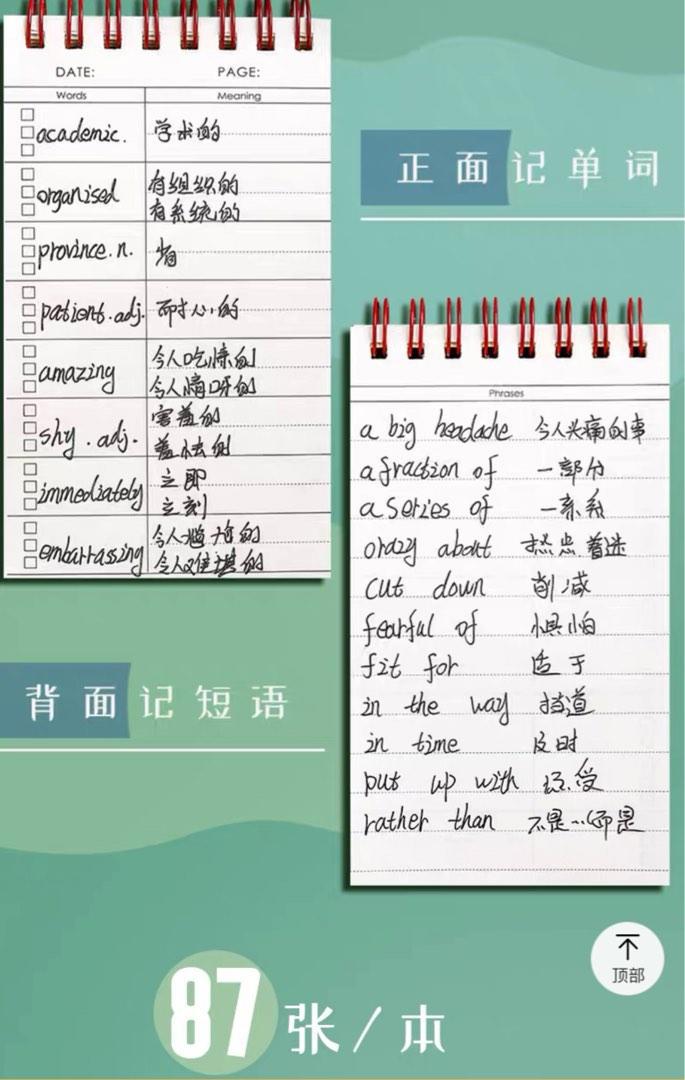 DATE: PAGE:
Words Meaning
academic. 学术的
organised 有组织的
有系统的
province.n. 省
patient.adj. 耐心的
amazing 令人吃惊的
令人惰呀的
shy.adj. 害羞的
羞怯的
immediately 立即
立刻
embarrassing 令人尴尬的
令人难堪的
正面记单词
Phrases
a big headache 令人头痛的事
a fraction of 一部分
a series of 一系列
crazy about 热忠着迷
cut down 削减
fearful of 惧怕
fit for 适于
in the way 挡道
in time 及时
put up with 忍受
rather than 不是…而是
背面记短语
顶部
87张/本